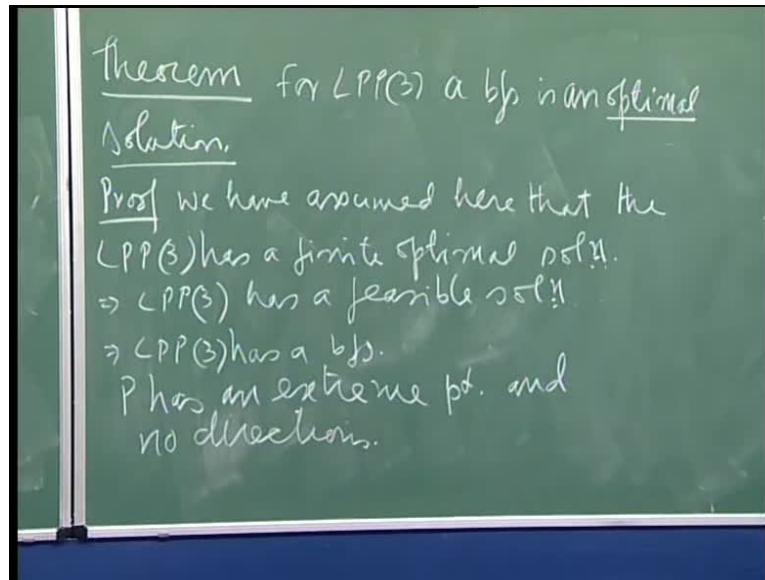 Theorem for LPP(3) a bfs is an optimal
solution.
Proof We have assumed here that the
LPP(3) has a finite optimal soln.
⇒ LPP(3) has a feasible soln
⇒ LPP(3) has a bfs.
P has an extreme pt. and
no directions.